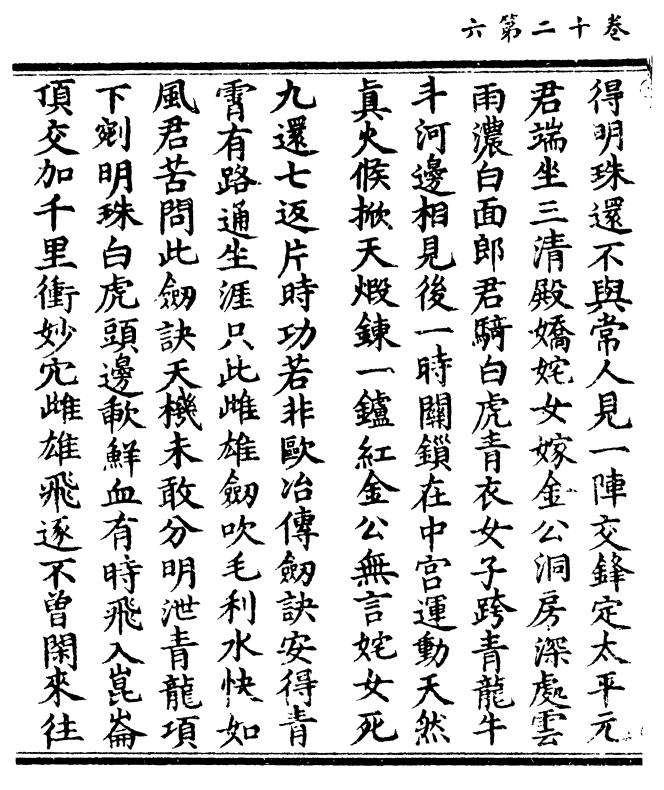 卷十二第六
得明珠還不與常人見一陣交鋒定太平元
君端坐三清殿嬌姹女嫁金公洞房深處雲
雨濃白面郎君騎白虎青衣女子跨青龍牛
斗河邊相見後一時關鎖在中宮運動天然
眞火候掀天煅鍊一鑪紅金公無言姹女死
九還七返片時功若非歐冶傳劒訣安得青
霄有路通坐涯只此雌雄劒吹毛利水快如
風君苦問此劒訣天機未敢分明泄青龍項
下剜明珠白虎頭邊㰸鮮血有時飛入崑崙
頂交加千里衝妙穴雌雄飛逐不曾閑來往